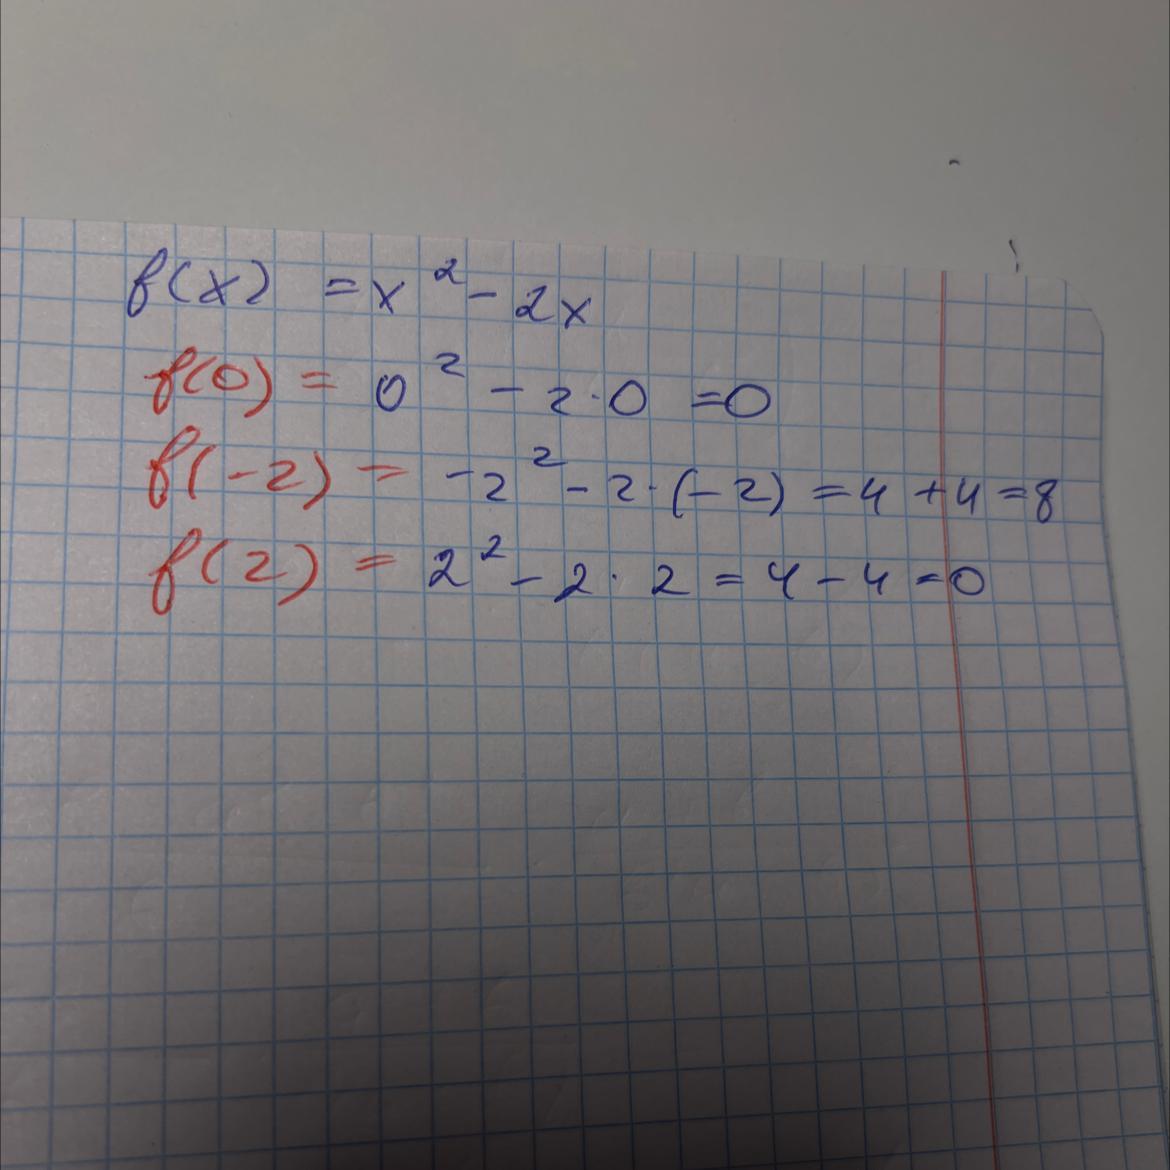 f(x) = x² - 2x
f(0) = 0² - 2·0 = 0
f(-2) = -2² - 2·(-2) = 4 + 4 = 8
f(2) = 2² - 2·2 = 4 - 4 = 0